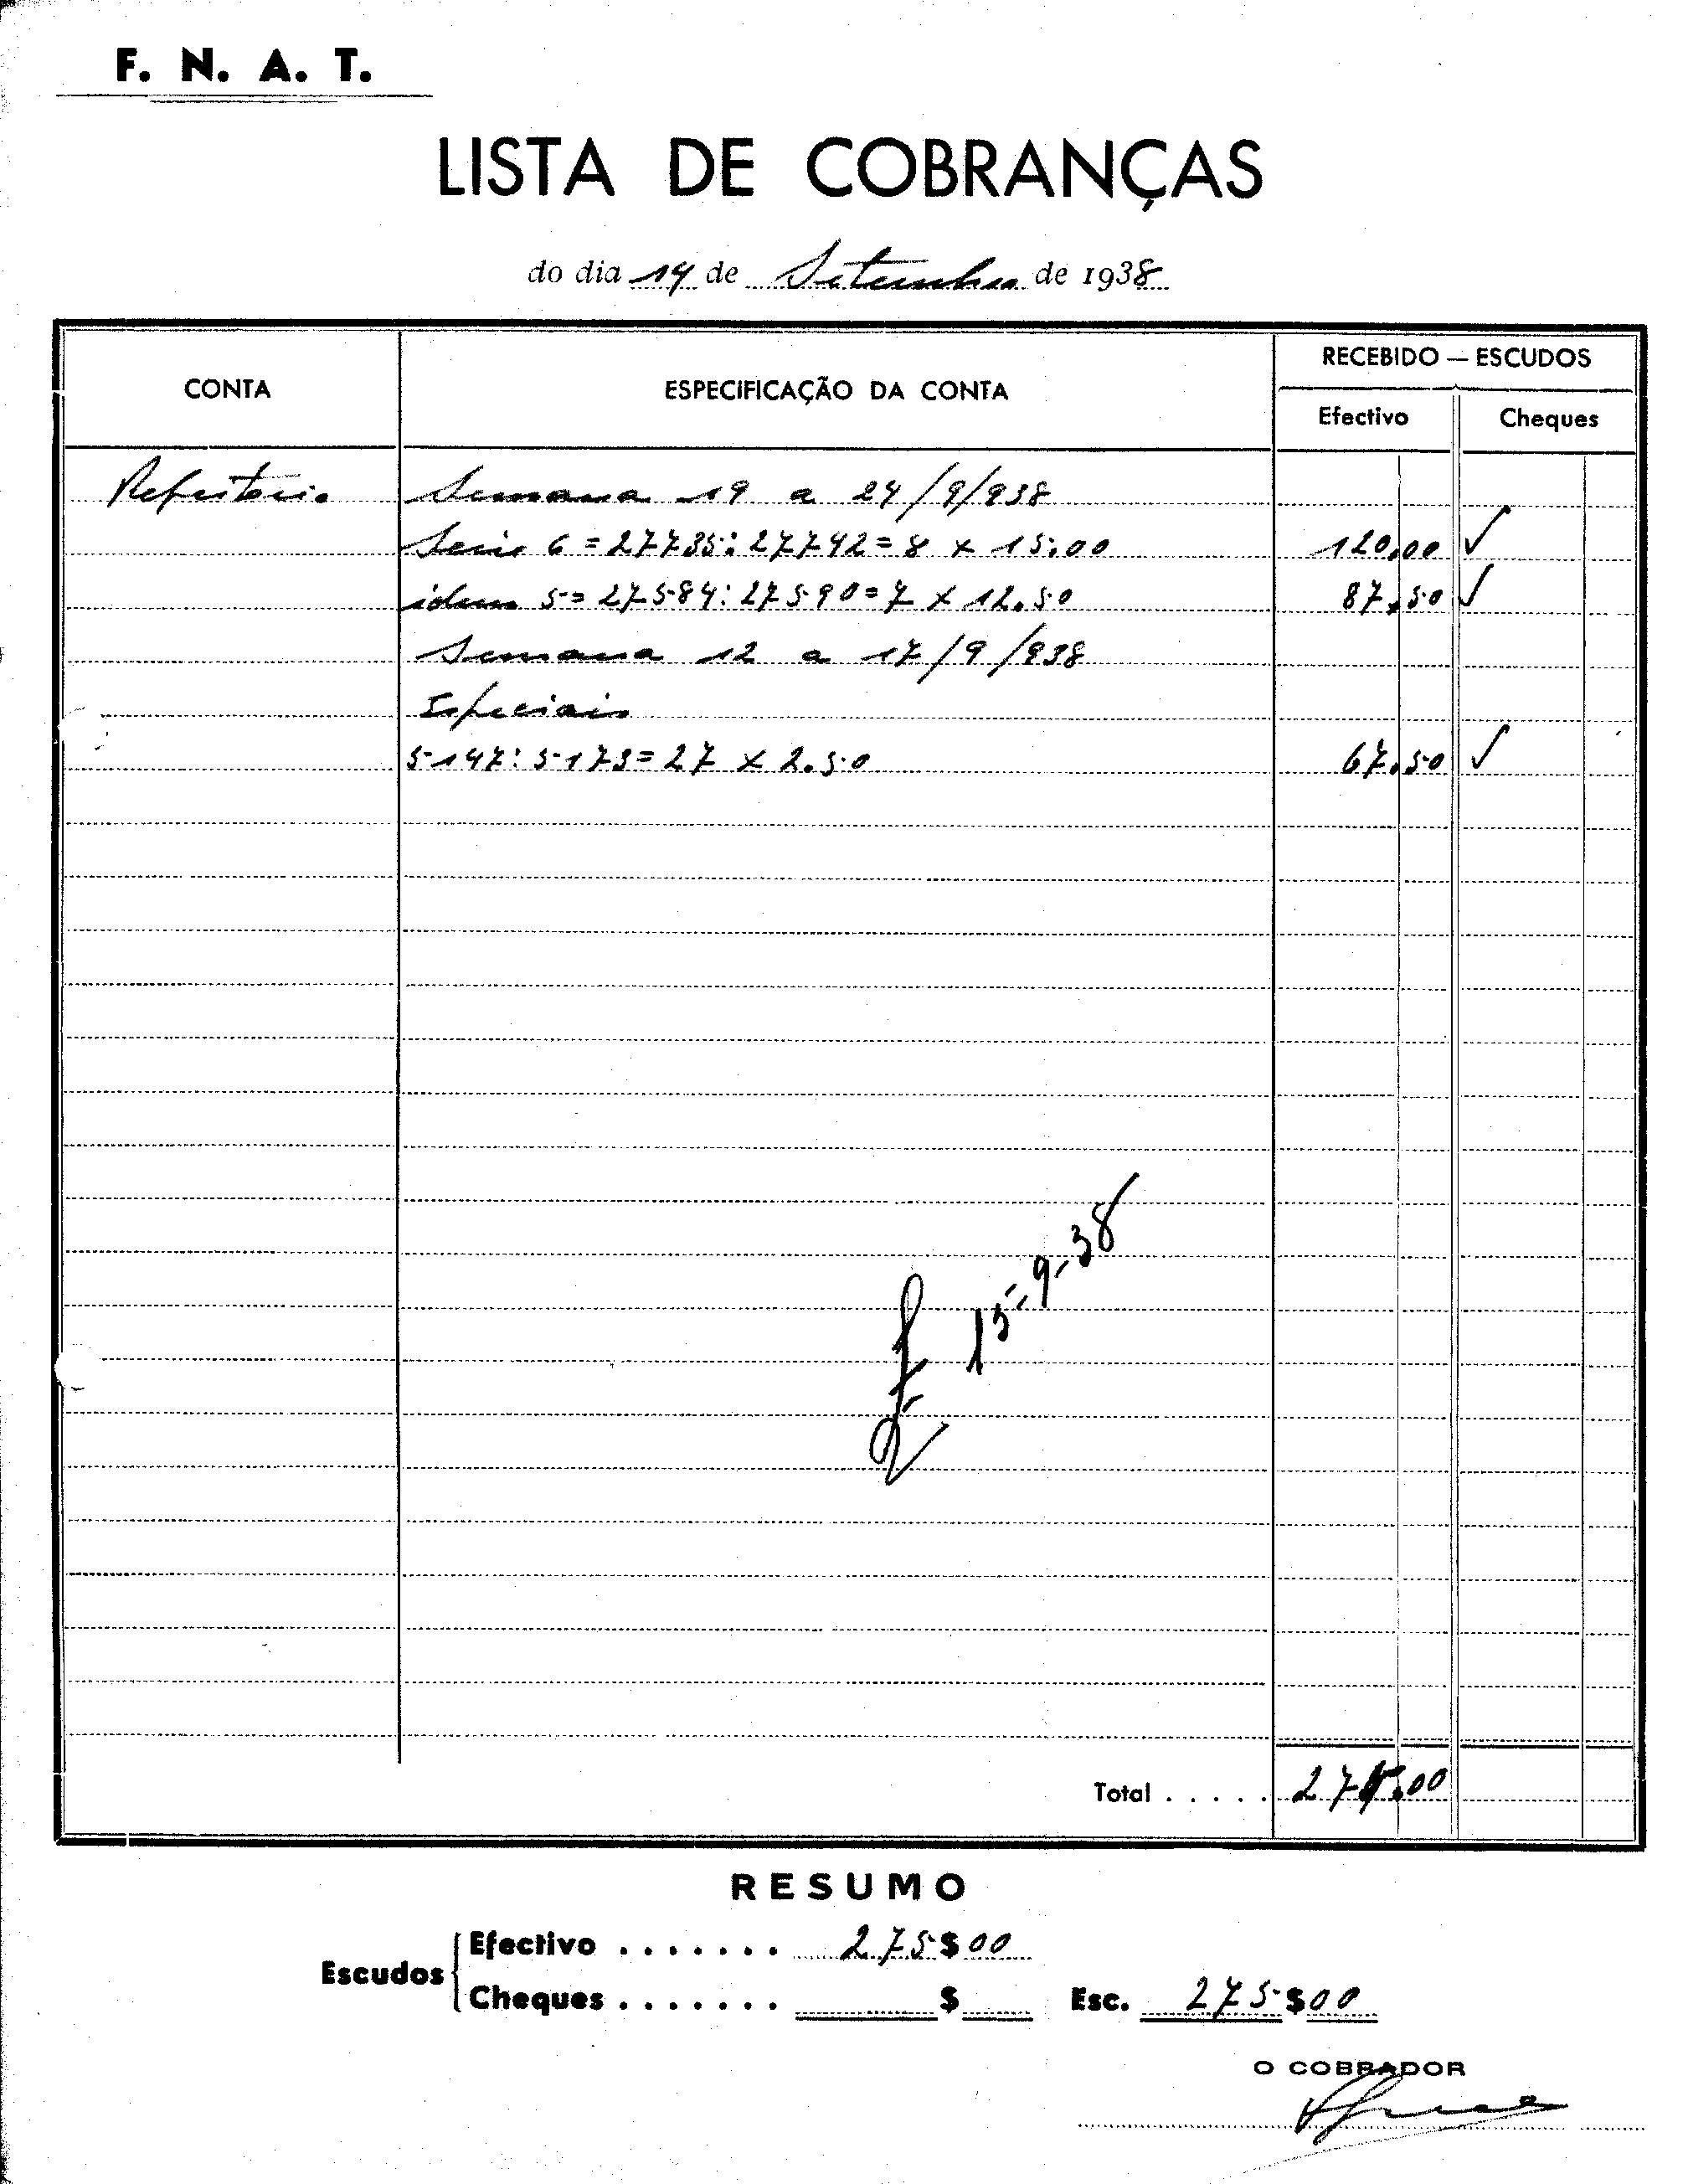 F. N. A. T.
LISTA DE COBRANÇAS
do dia 14 de Setembro de 1938
CONTA
ESPECIFICAÇÃO DA CONTA
RECEBIDO — ESCUDOS
Efectivo
Cheques
Refeitorio Semana 19 a 24/9/938
Serie 6 = 27735:27742 = 8 x 15.00 120,00 ✓
idem 5 = 27584:27590 = 7 x 12.50 87,50 ✓
Semana 12 a 17/9/938
Especiais
5147:5173 = 27 x 2.50 67,50 ✓
15-9-38
Total . . . . . 275.00
RESUMO
Escudos
Efectivo . . . . . . . 275$00
Cheques . . . . . . . $ Esc. 275$00
O COBRADOR